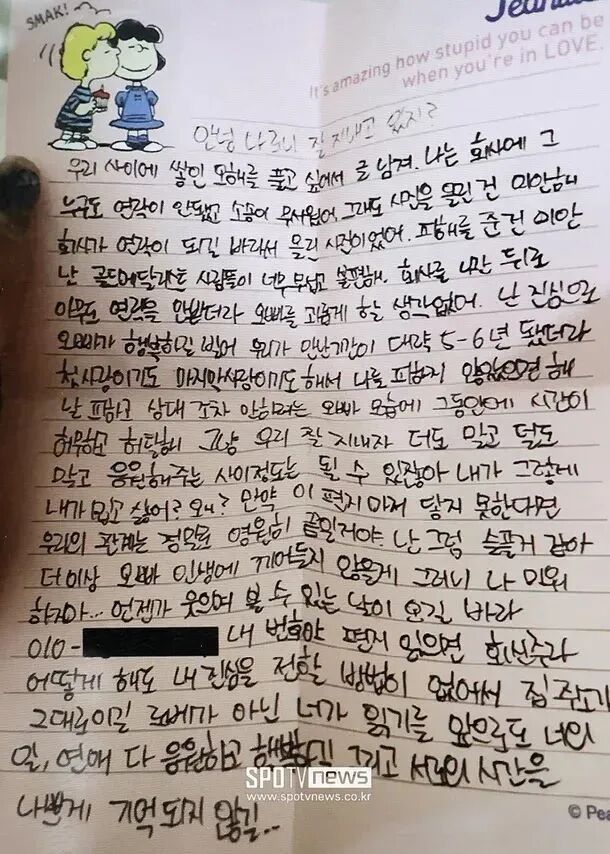 SMAK!
It's amazing how stupid you can be
when you're in LOVE.
안녕 나르니 잘 지내고 있지?
우리 사이에 쌓인 오해를 풀고 싶어서 글 남겨. 나는 회사에 그
누구도 연락이 안됐고 소송이 무서웠어. 그래도 사진을 올린 건 미안해
회사가 연락이 되길 바라서 올린 사진이었어. 피해를 준건 미안
난 골드메달리스트 사람들이 너무 무섭고 불편해. 회사를 나간 뒤로
아무도 연락을 안받더라 오빠를 괴롭게 할 생각없어. 난 진심으로
오빠가 행복하길 빌어 우리가 만난기간이 대략 5-6년 됐더라
첫사랑이기도 마지막사랑이기도해서 나를 피하지 않았으면 해
날 피하고 상대조차 안하려는 오빠 모습에 그동안에 시간이
허무하고 허탈해 그냥 우리 잘 지내자 더도 말고 덜도
말고 응원해주는 사이정도는 될 수 있잖아 내가 그렇게
내가 밉고 싫어? 왜? 만약 이 편지마저 닿지 못한다면
우리의 관계는 정말로 영원히 끝일거야. 난 그럼 슬플거 같아
더이상 오빠 인생에 끼어들지 않을게 그러니 나 미워
하지마... 언젠가 웃으며 볼 수 있는 날이 오길 바라
010- 내 번호야 편지 읽으면 회신주라
어떻게 해도 내 진심을 전할 방법이 없어서 집 주소가
그대로이길 로베가 아닌 너가 읽기를 앞으로도 너의
일, 연애 다 응원하고 행복하길 그리고 서로의 시간을
나쁘게 기억되지 않길...
SPOTV news
www.spotvnews.co.kr